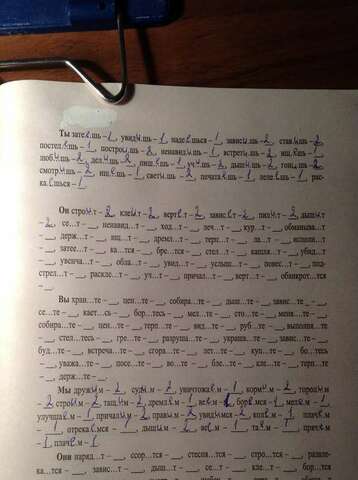 Ты зате.шь – 1, увид.шь – 1, наде.шься – 1, завис.шь – 2, став.шь – 2
постел.шь – 1, постро.шь – 2, ненавид.шь – 1, встрет.шь – 2, ищ.шь – 1
люб.шь – 2, дел.шь – 2, пиш.шь – 1, уч.шь – 2, дыш.шь – 2, гон.шь – 2
смотр.шь – 2, ищ.шь – 1, свет.шь – 2, печата.шь – 1, леле.шь – 1, рас-
ка.шься – 1
Он стро.т – 2, кле.т – 2, верт.т – 2, завис.т – 2, пил.т – 2, дыш.т
– 2, се…т – __, ненавид…т – __, ход…т – __, леч…т – __, кур…т – __, обманыва…т
– __, держ…т – __, ищ…т – __, дремл…т – __, терп…т – __, ла…т – __, исцели…т
– __, зате…т – __, ка…тся – __, бре…тся – __, стел…т – __, капл…т – __, убищ…т
– __, увенча…т – __, обла…т – __, увид…т – __, услыш…т – __, повес…т – __, под-
стрел…т – __, раскле…т – __, уч…т – __, причал…т – __, верт…т – __, обанкрот…тся
– __.
Вы хран…те – __, цен…те – __, собира…те – __, дыш…те – __, завис…те – __,
се…те – __, кает…сь – __, бор…тесь – __, мел…те – __, сто…те – __, меня…те – __,
собира…те – __, цен…те – __, терп…те – __, вид…те – __, руб…те – __, выполня…те
– __, стел…тесь – __, гре…те – __, разруша…те – __, украша…те – __, завис…те – __,
буд…те – __, встреча…те – __, сгора…те – __, лет…те – __, куп…те – __, бо…тесь
– __, уважа…те – __, посе…те – __, во…те – __, бле…те – __, кле…те – __, терп…те
– __, держ…те – __.
Мы друж.м – 2, суд.м – 2, уничтожа.м – 1, корм.м – 2, город.м
– 2, стро.м – 2, тащ.м – 2, дремл.м – 1, ве.м – 1, бор.мся – 1, мел.м – 1
улучша.м – 1, причал.м – 2, прав.м – 2, увид.мся – 2, кол.м – 1, плач.м
– 1, отрека.мся – 1, дыш.м – 2, ве.м – 1, та.м – 1, пряч.м – 1
– 1, плач.м – 1
Они наряд…т – __, ссор…тся – __, стесня…тся – __, стро…тся – __, развле-
ка…тся – __, завис…т – __, дыш…т – __, се…т – __, кле…т – __, бор…тся